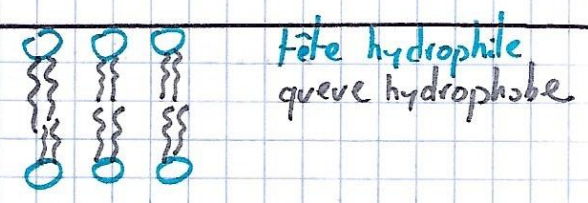 tête hydrophile
queue hydrophobe